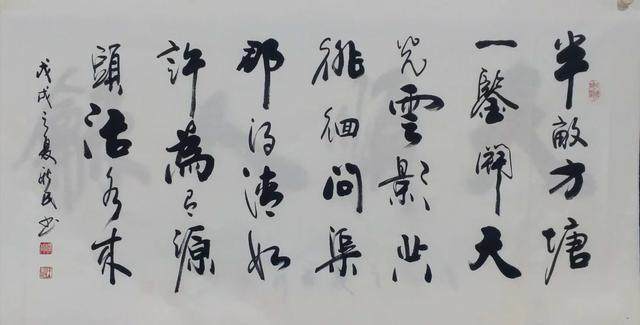 半畝方塘
一鑒開天
光雲影共
徘徊問渠
那得清如
許為有源
頭活水來
戊戌之夏民書